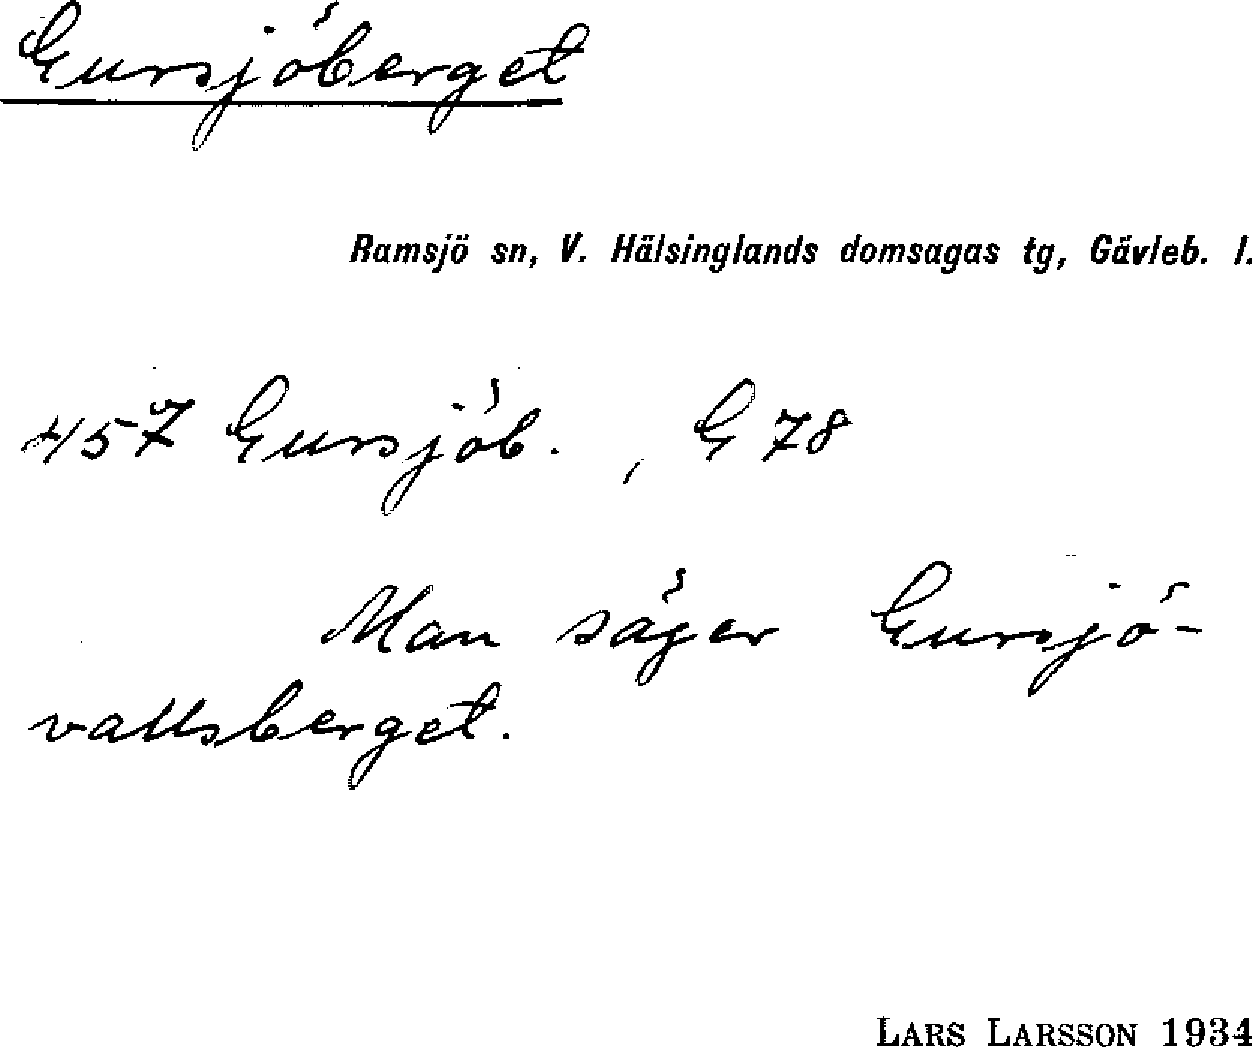 Gursjöberget
Ramsjö sn, V. Hälsinglands domsagas tg, Gävleb. l.
457 Gursjöb. , G 78
Man säger Gursjö-
vallsberget.
LARS LARSSON 1934